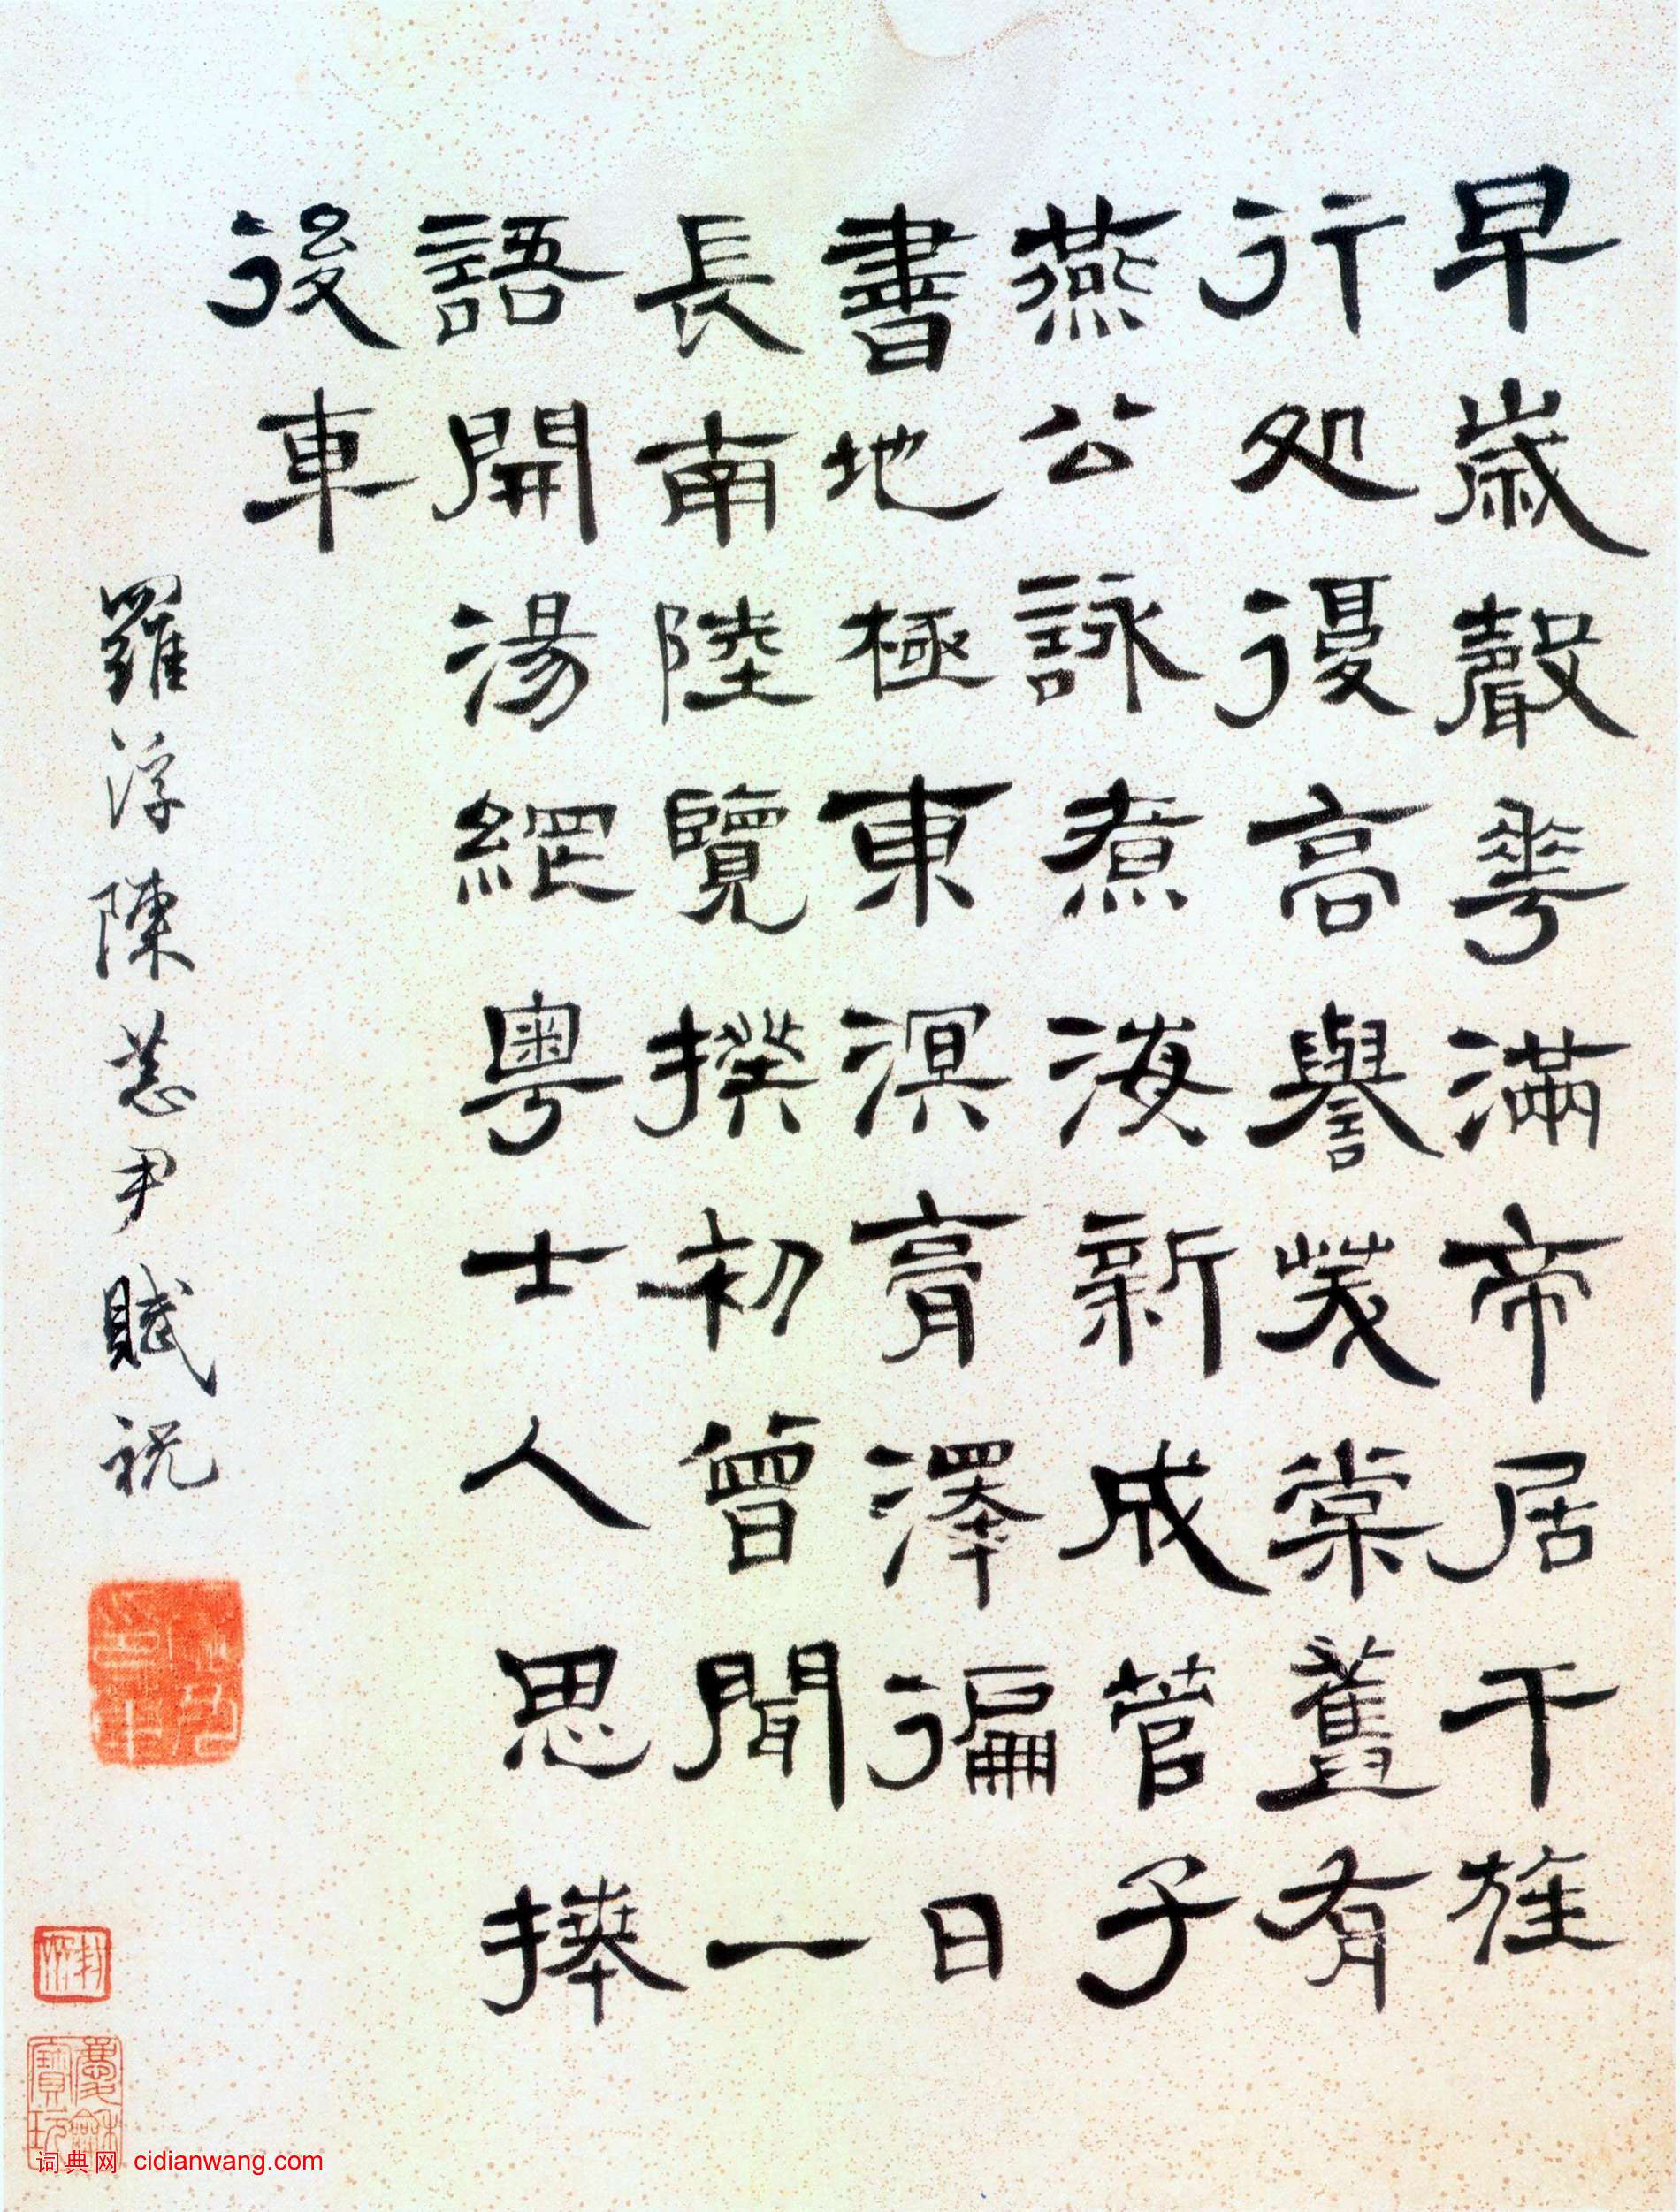 早歲聲華滿帝居干旌
行処復高譽茂棠舊有
燕公詠煮海新成管子
書地極東溟膏澤徧日
長南陸覽揆初曾聞一
語開湯網粵士人思捧
後車
羅浮陳恭尹賦祝
词典网 cidianwang.com